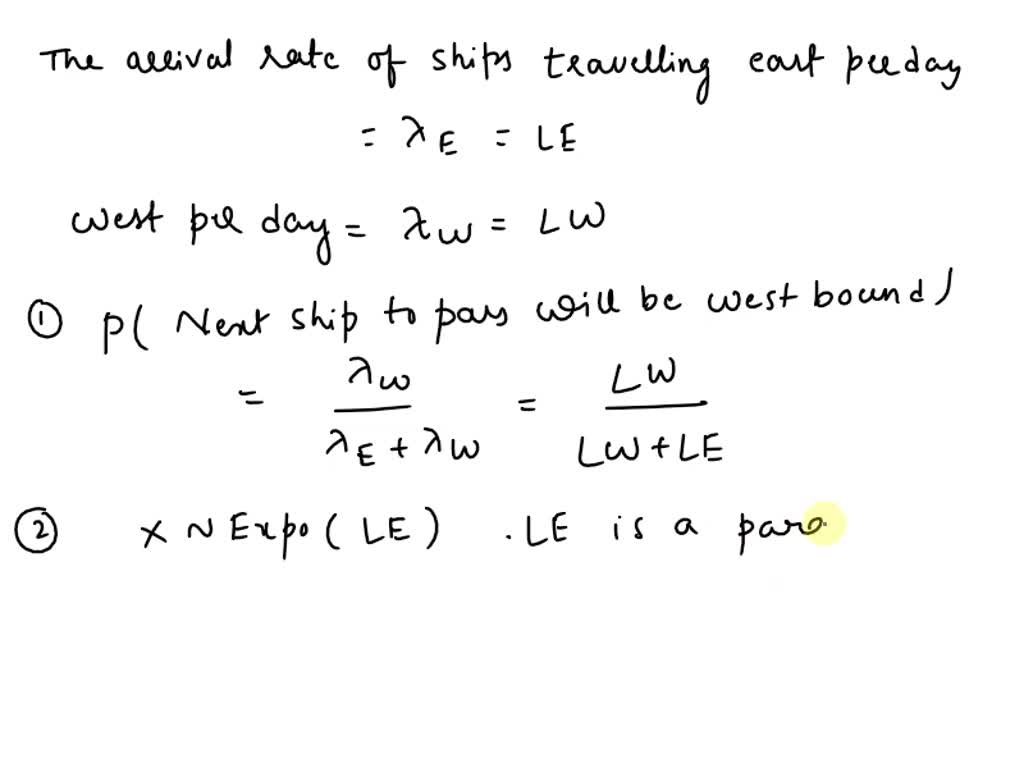 The arrival rate of ships travelling east per day
= λE = LE
west per day = λW = LW
① P( Next ship to pass will be west bound )
= λW / λE + λW = LW / LW + LE
② X ~ Expo ( LE ) . LE is a para